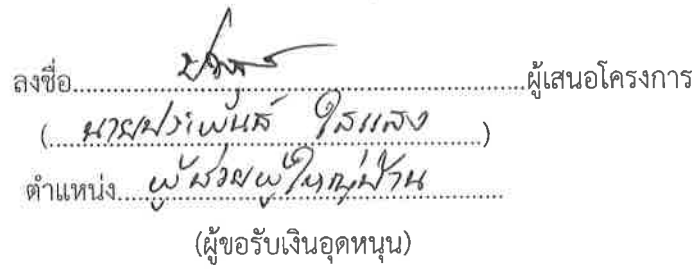 ลงชื่อ..............................ผู้เสนอโครงการ
(นายประพันธ์ ใสแสง)
ตำแหน่ง ผู้ช่วยผู้ใหญ่บ้าน
(ผู้ขอรับเงินอุดหนุน)